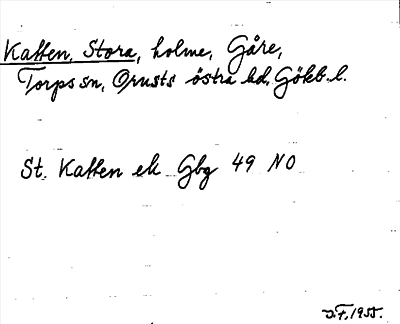 Katten, Stora, holme, Gåre,
Torps sn, Orusts östra hd, Göteb. l.
St. Katten ek Gbg 49 NO
J.F. 1955.